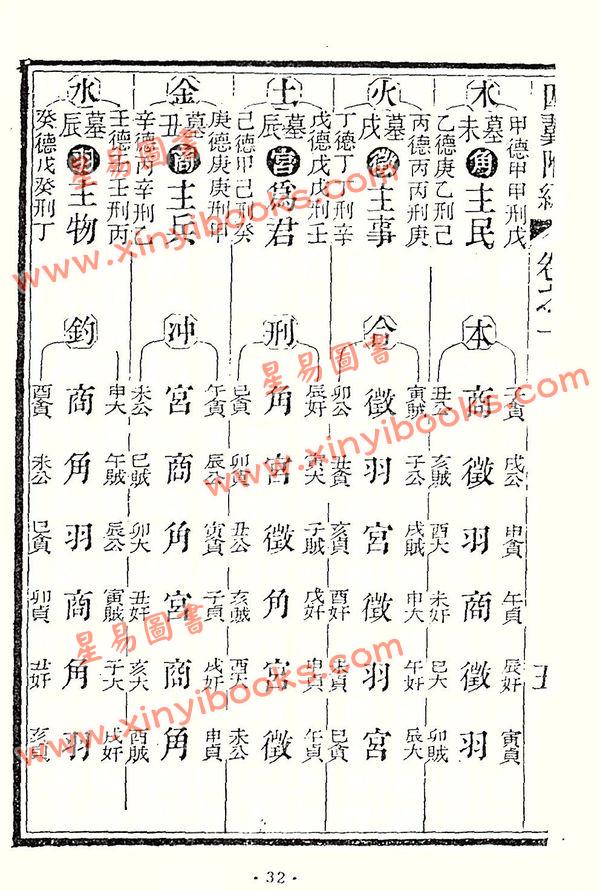 卷之一
五
木
甲德甲甲刑戊
墓未
角主民
乙德庚乙刑己
火
丙德丙丙刑庚
墓戌
徵主事
丁德丁丁刑辛
土
戊德戊戊刑壬
墓辰
宮爲君
己德甲己刑癸
金
庚德庚庚刑甲
墓丑
商主兵
辛德丙辛刑乙
水
壬德壬壬刑丙
墓辰
羽主物
癸德戊癸刑丁
本
子貪 戌公 申貪 午貞 辰奸 寅貞
商 徵 羽 商 徵 羽
丑公 亥賊 酉大 未奸 巳大 卯賊
合
寅賊 子公 戌賊 申大 午奸 辰大
徵 羽 宮 徵 羽 宮
卯公 丑貪 亥貞 酉奸 未貞 巳貪
刑
辰奸 寅大 子賊 戌奸 申貞 午貞
角 宮 徵 角 宮 徵
巳貪 卯貞 丑公 亥賊 酉大 未公
冲
午貪 辰公 寅貪 子貞 戌奸 申貞
宮 商 角 宮 商 角
未公 巳賊 卯大 丑奸 亥大 酉賊
鈎
申大 午賊 辰公 寅賊 子大 戌奸
商 角 羽 商 角 羽
酉貪 未公 巳貪 卯貞 丑奸 亥貞
· 32 ·
星易圖書
www.xinyibooks.com
星易圖書
www.xinyibooks.com
星易圖書
www.xinyibooks.com